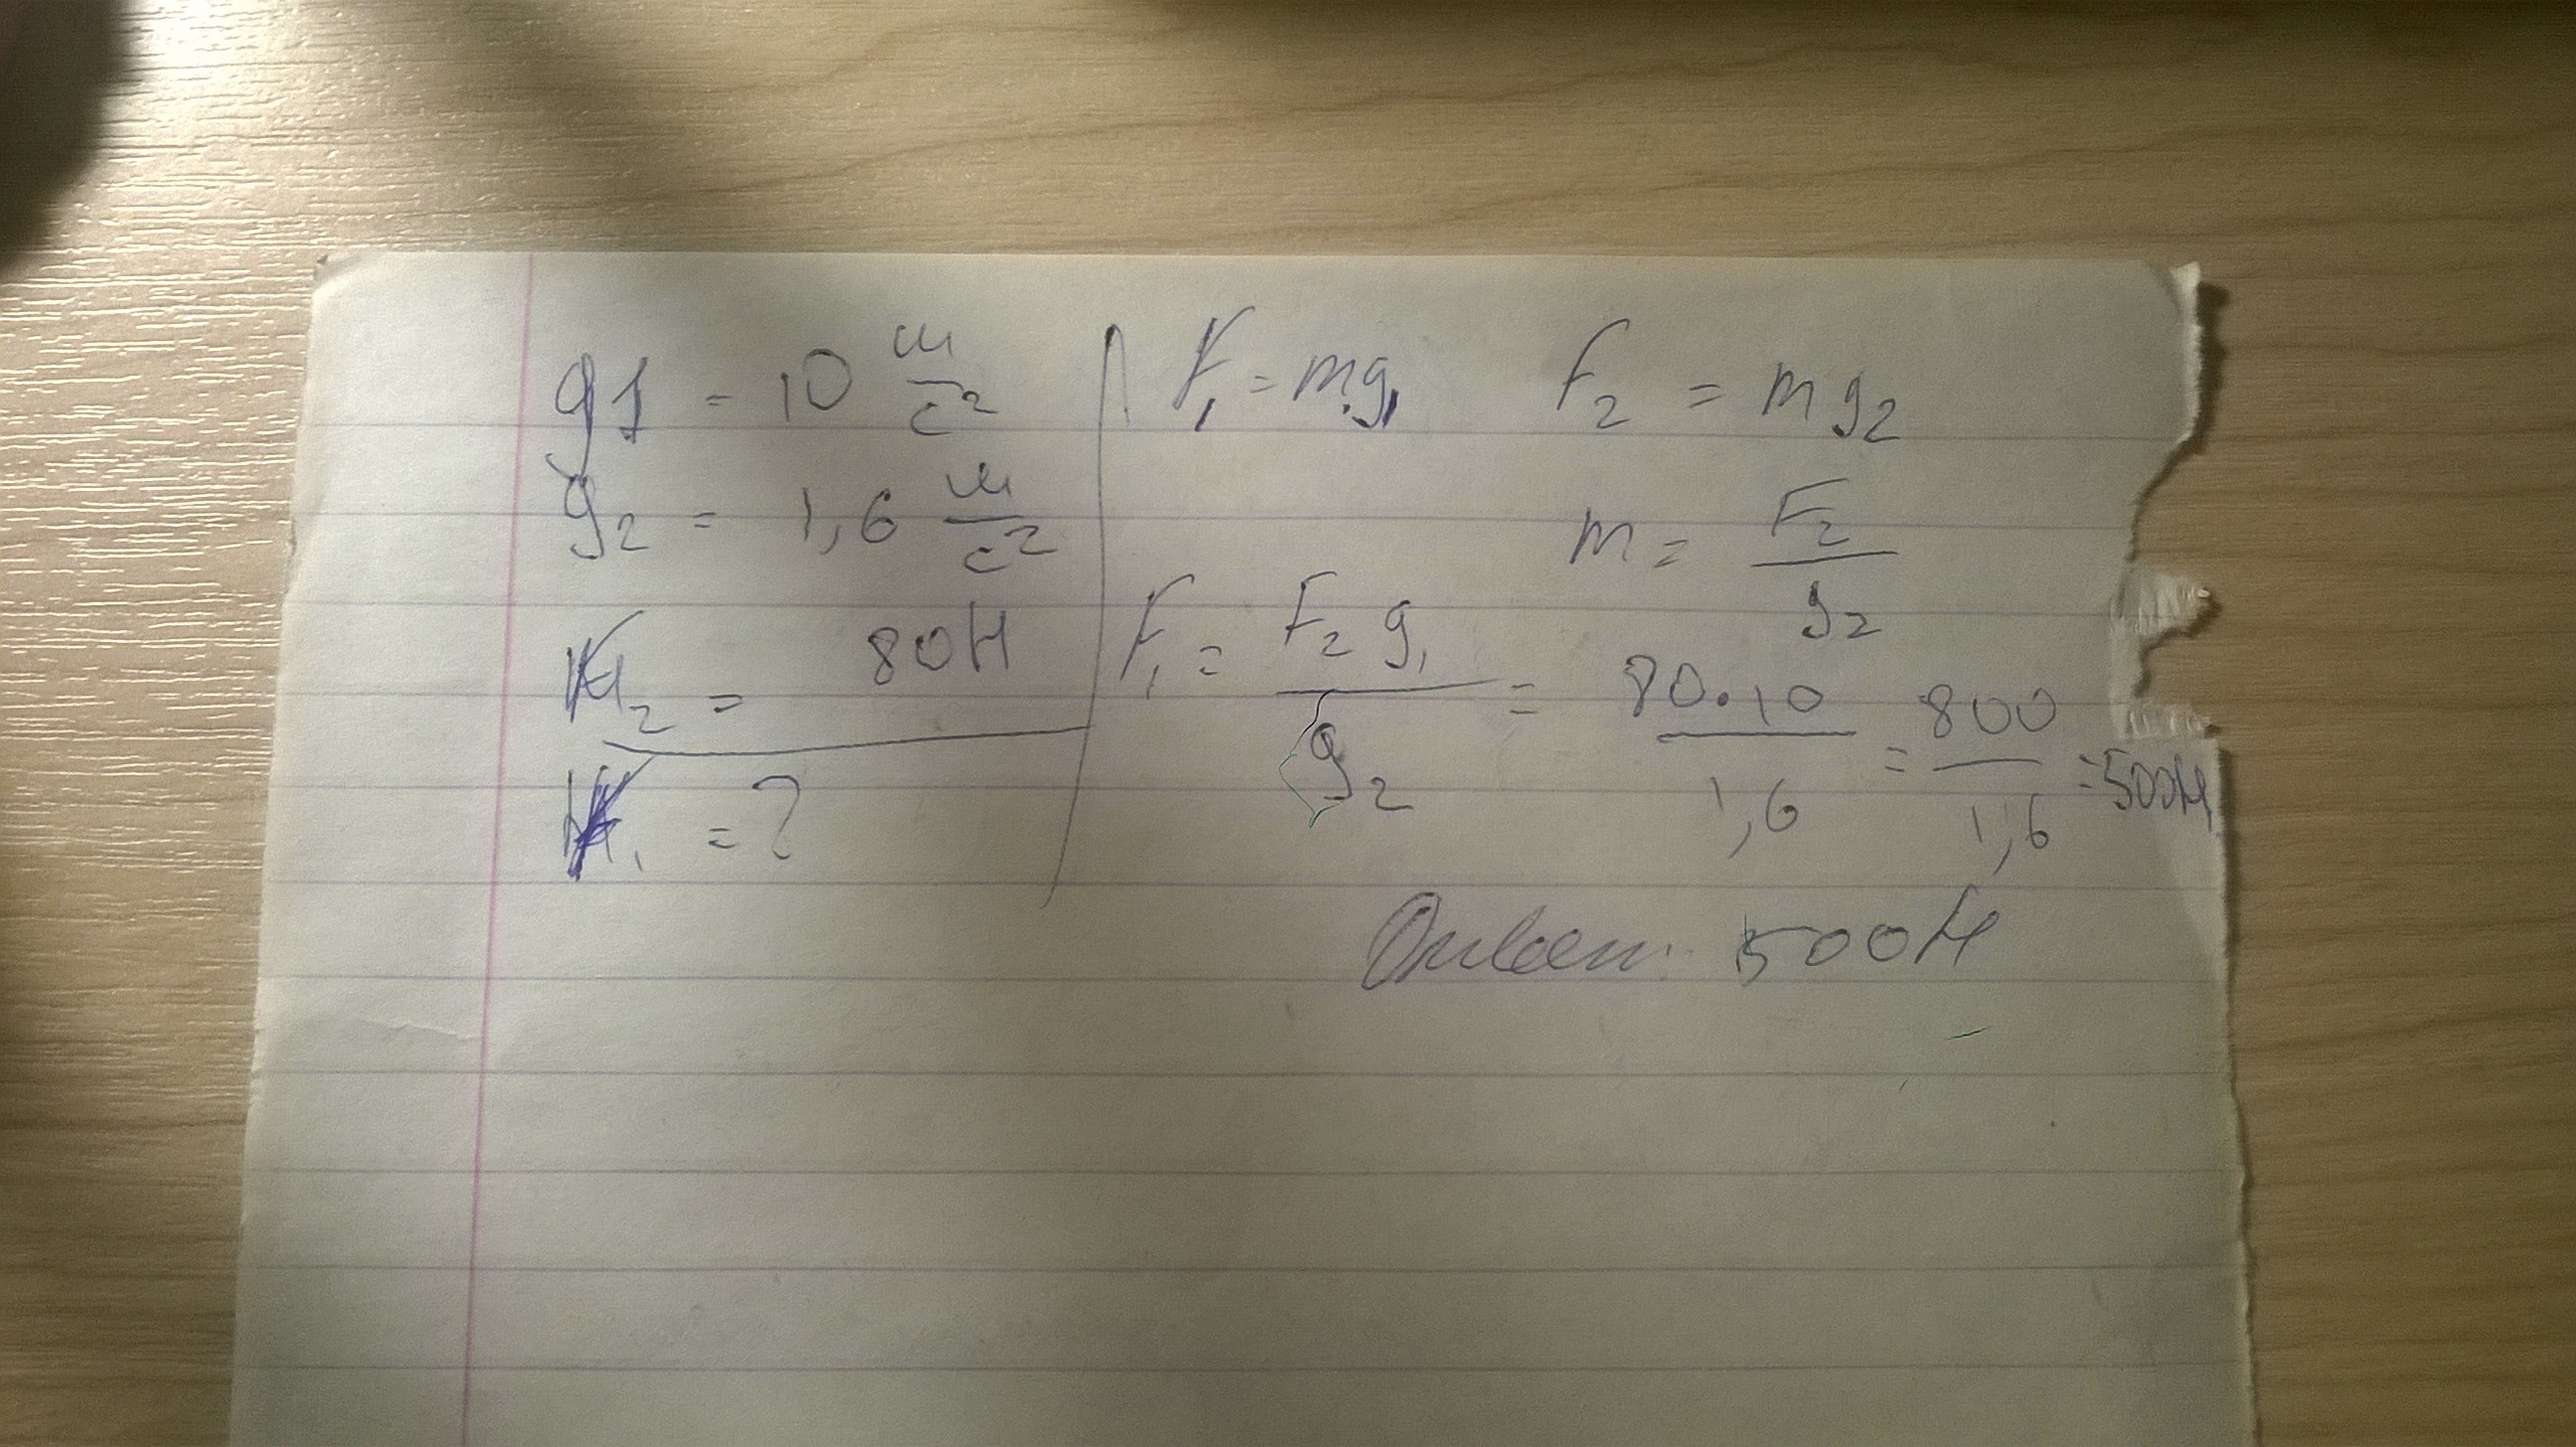 g1 = 10 м/с²
g₂ = 1,6 м/с²
F₂ = 80Н
F₁ = ?
F₁ = mg₁
F₂ = mg₂
m = F₂/g₂
F₁ = F₂g₁/g₂ = 80·10/1,6 = 800/1,6 = 500Н
Ответ: 500Н